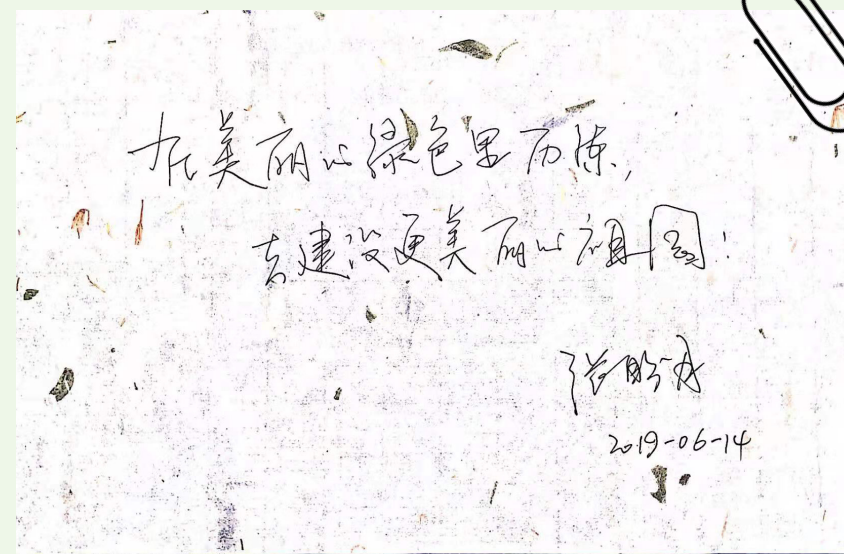 在美丽的绿色里历练,
去建设更美丽的祖国!
2019-06-14